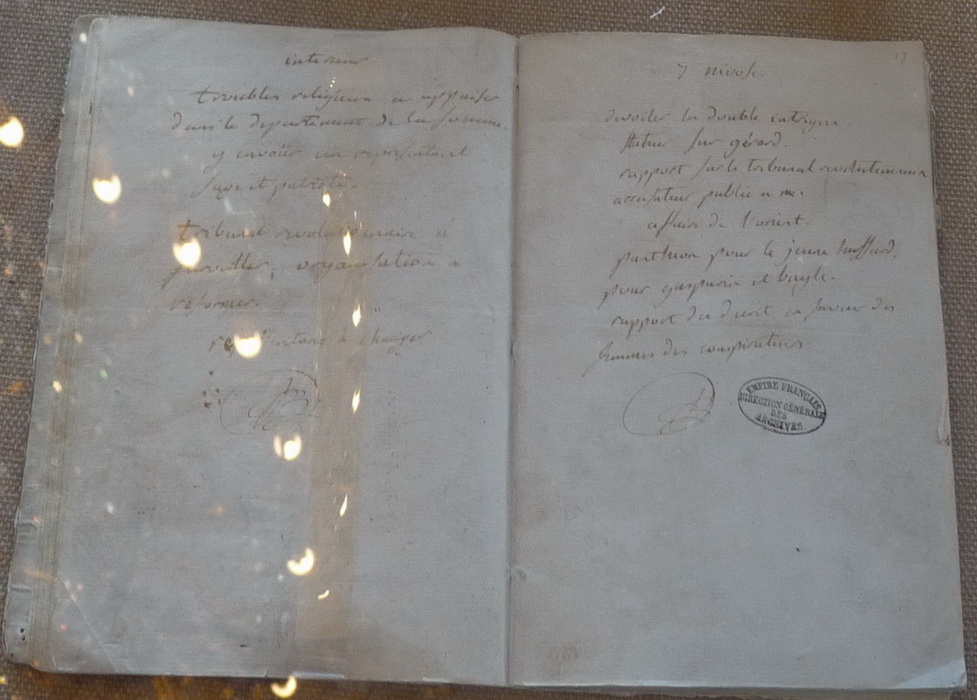 interieur
troubles religieux a appaiser
dans le departement de la somme.
y envoïer un representant
sage et patriote.
tribunal revolutionnaire à
surveiller; organisation a
reformer.
à changer
7 nivose.
17
devoiler la double intrigue
statuer sur gérard.
rapport sur le tribunal revolutionnaire
accusateur public
affaire de l'orient.
pantheon pour le jeune
pour gasparin et bayle.
rapport du decret en faveur des
femmes des conspirateurs.
EMPIRE FRANÇAIS
DIRECTION GÉNÉRALE
DES
ARCHIVES